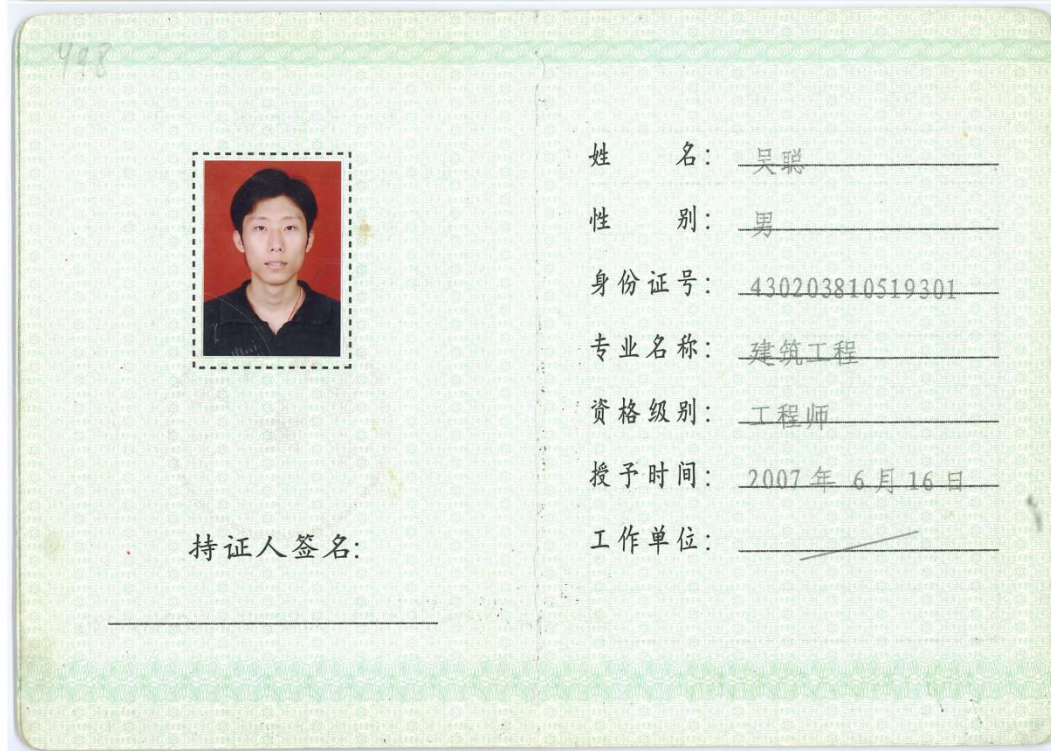 498
持证人签名:
姓名: 吴聪
性别: 男
身份证号: 430203810519301
专业名称: 建筑工程
资格级别: 工程师
授予时间: 2007 年 6 月 16 日
工作单位: